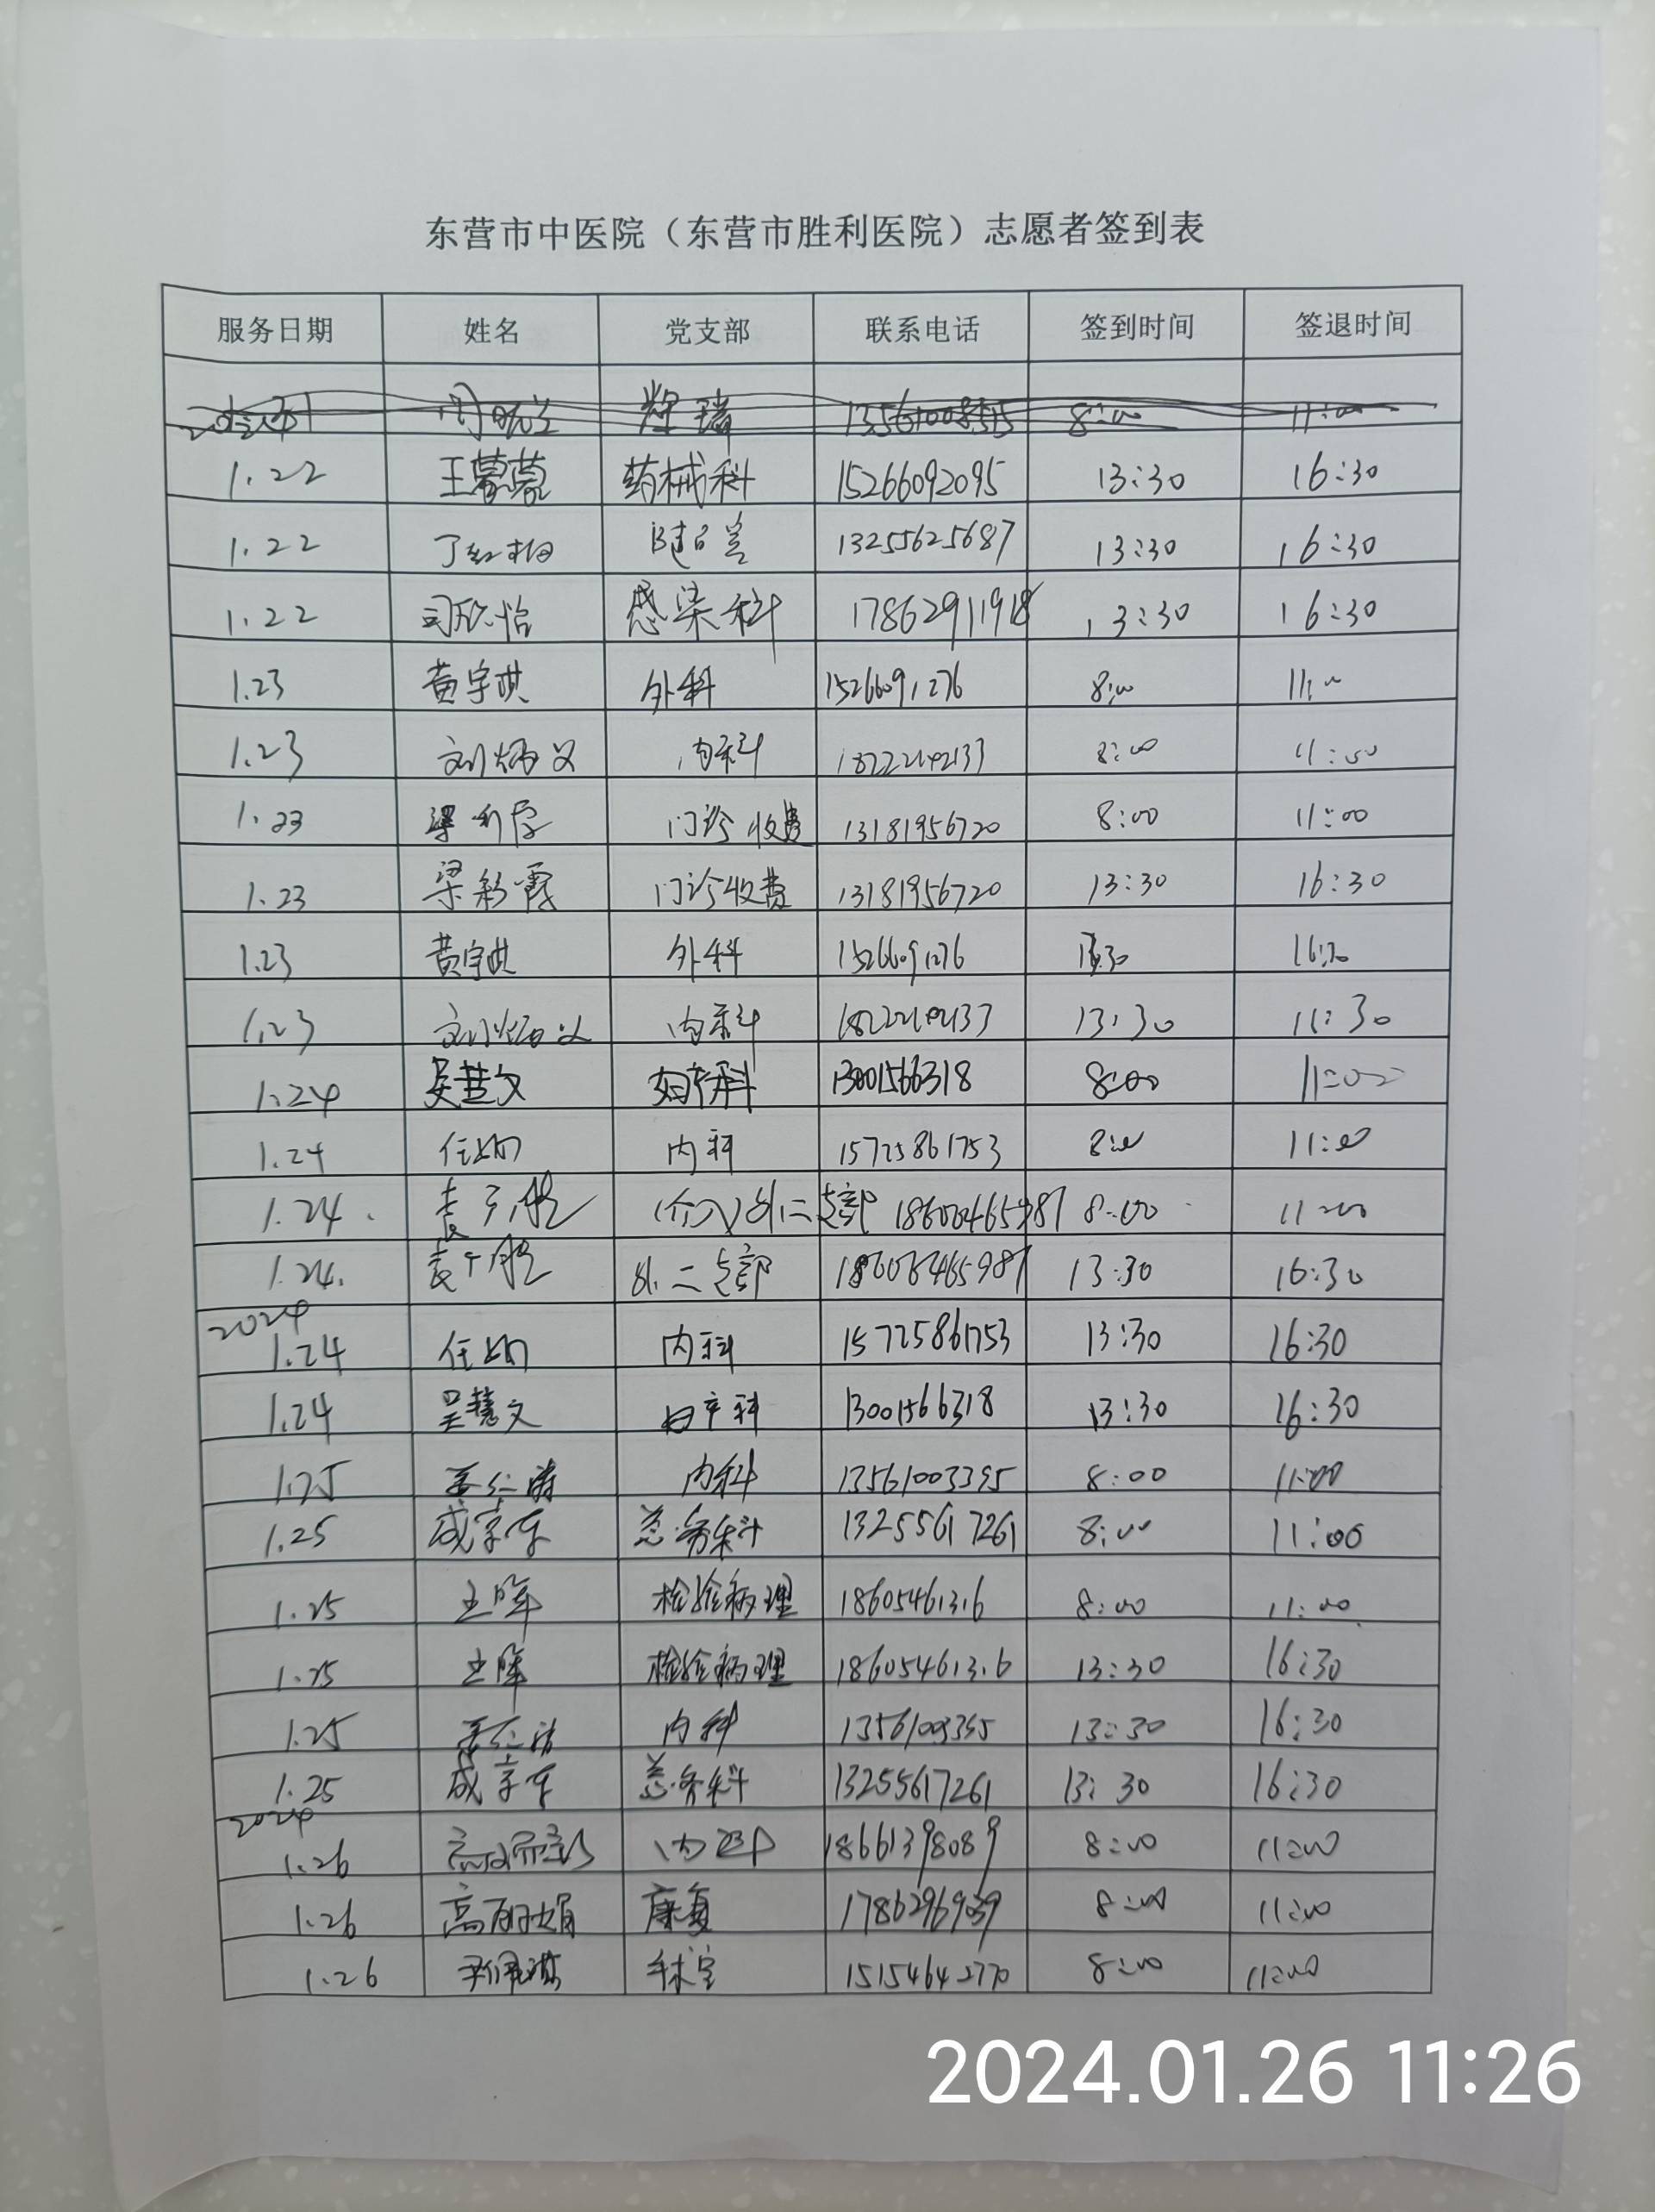 东营市中医院（东营市胜利医院）志愿者签到表
服务日期 姓名 党支部 联系电话 签到时间 签退时间
8:00 11:00
1.22 王蒙蒙 药械科 15266092095 13:30 16:30
1.22 丁红梅 13255625687 13:30 16:30
1.22 司欣怡 感染科 17862911918 13:30 16:30
1.23 黄宇琪 外科 15266091276 8:00 11:00
1.23 刘炳义 内科 8:00 11:00
1.23 门诊收费 13181956720 8:00 11:00
1.23 梁彩霞 门诊收费 13181956720 13:30 16:30
1.23 黄宇琪 外科 15266091276 13:30 16:30
1.23 刘炳义 内科 13:30 11:30
1.24 吴慧文 妇产科 13001566318 8:00 11:00
1.24 任娟 内科 15725861753 8:00 11:00
1.24. (介入)外二支部 8:00 11:00
1.24. 外二支部 13:30 16:30
2024
1.24 任娟 内科 15725861753 13:30 16:30
1.24 吴慧文 妇产科 13001566318 13:30 16:30
1.25 内科 13561003395 8:00 11:00
1.25 总务科 13255617261 8:00 11:00
1.25 王晖 检验病理 18605461316 8:00 11:00
1.25 王晖 检验病理 18605461316 13:30 16:30
1.25 内科 13:30 16:30
1.25 总务科 13255617261 13:30 16:30
2024
1.26 内科 18661398089 8:00 11:00
1.26 高丽娟 康复 17862969039 8:00 11:00
1.26 手术室 15154642770 8:00 11:00
2024.01.26 11:26